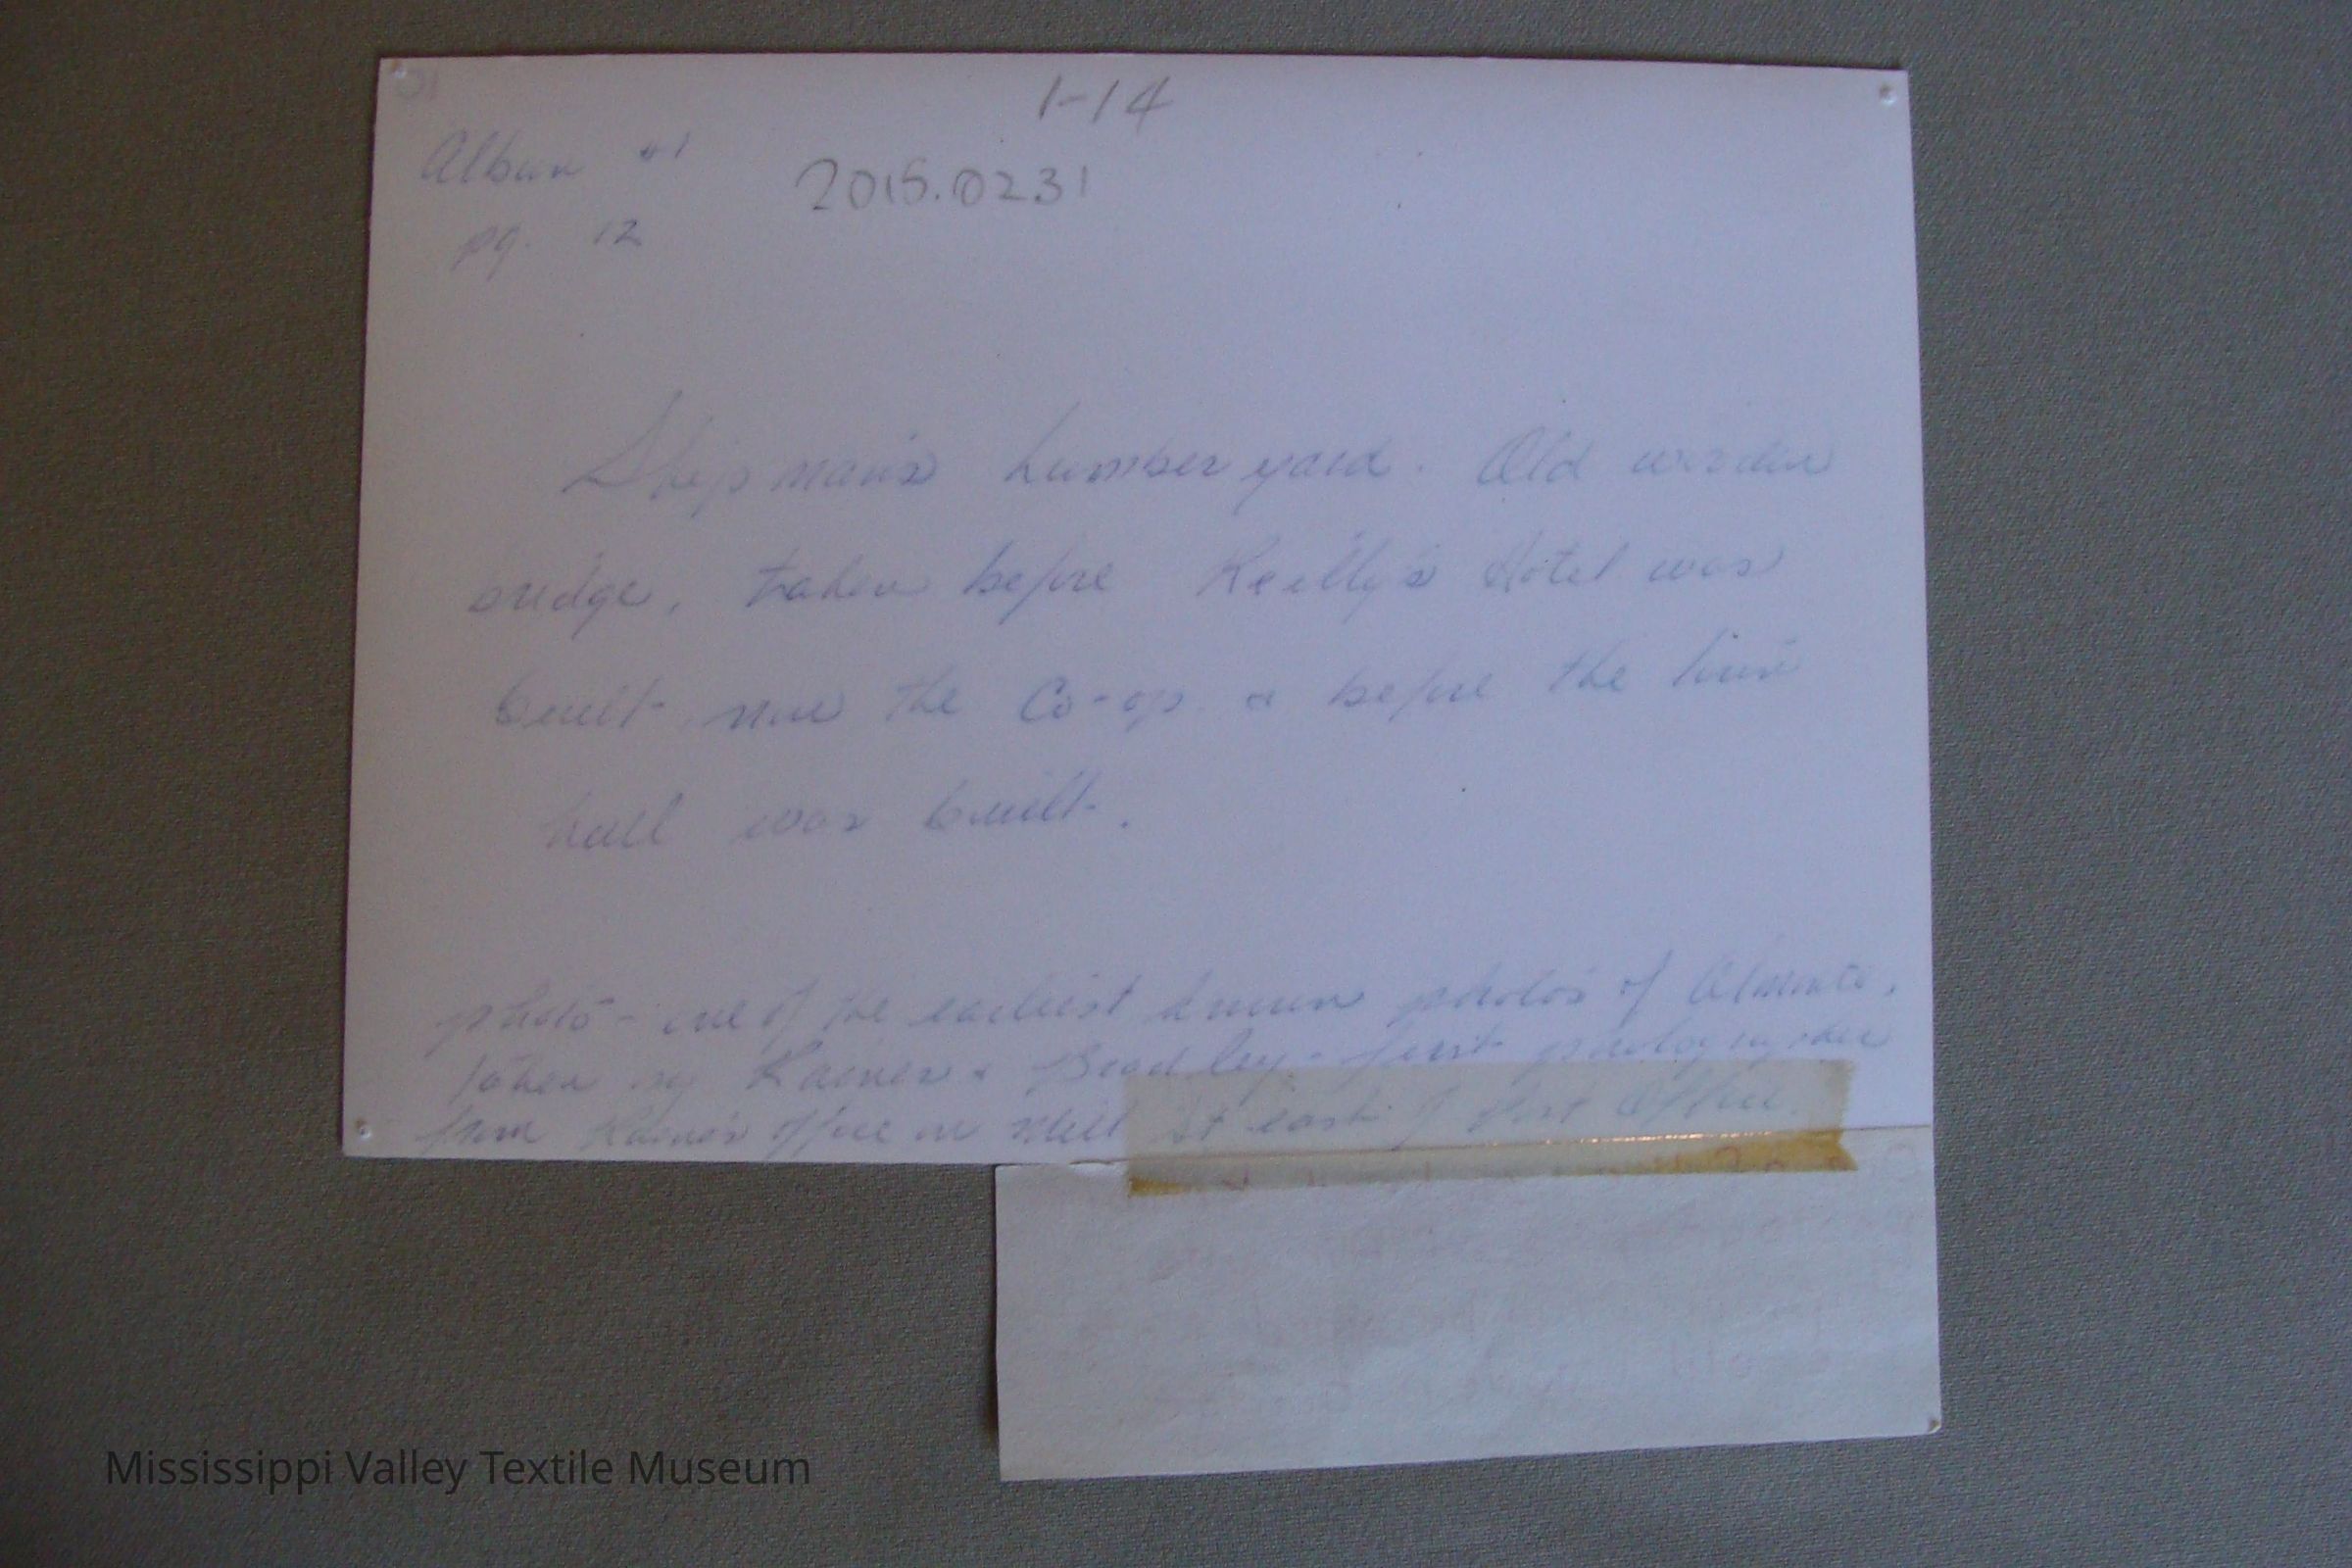 1-14
Album #1
2015.0231
pg. 12
Shipman's Lumber yard. Old wooden
bridge, taken before Reilly's Hotel was
built - now the Co-op & before the town
hall was built.
photo - one of the earliest known photos of Almonte,
taken by & Beadley - first photographer
from office on Mill St east of Post Office.
Mississippi Valley Textile Museum